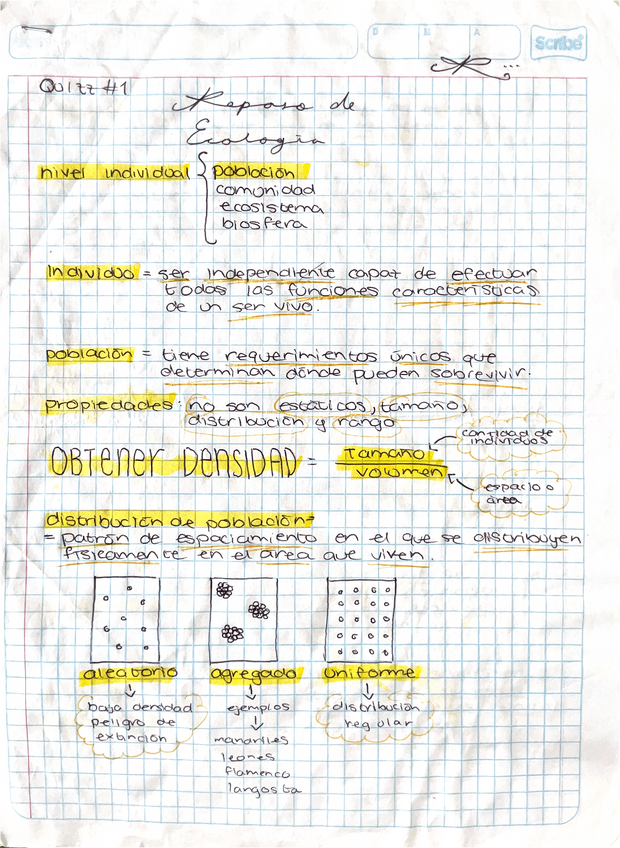 D M A
Scribe
...
QUIZZ #1
Repaso de
Ecología
nivel individual { población
comunidad
ecosistema
biosfera
Individuo = ser independiente capaz de efectuar
todas las funciones características
de un ser vivo.
población = tiene requerimientos únicos que
determinan dónde pueden sobrevivir.
propiedades: no son estáticos, tamaño,
distribución y rango
cantidad de
individuos
OBTENER DENSIDAD = Tamaño
Volumen
espacio o
área
distribución de población=
= patrón de espaciamiento en el que se distribuyen
físicamente en el área que viven.
aleatorio agregado uniforme
baja densidad
peligro de
extinción
ejemplos
mandriles
leones
flamenco
langosta
distribución
regular